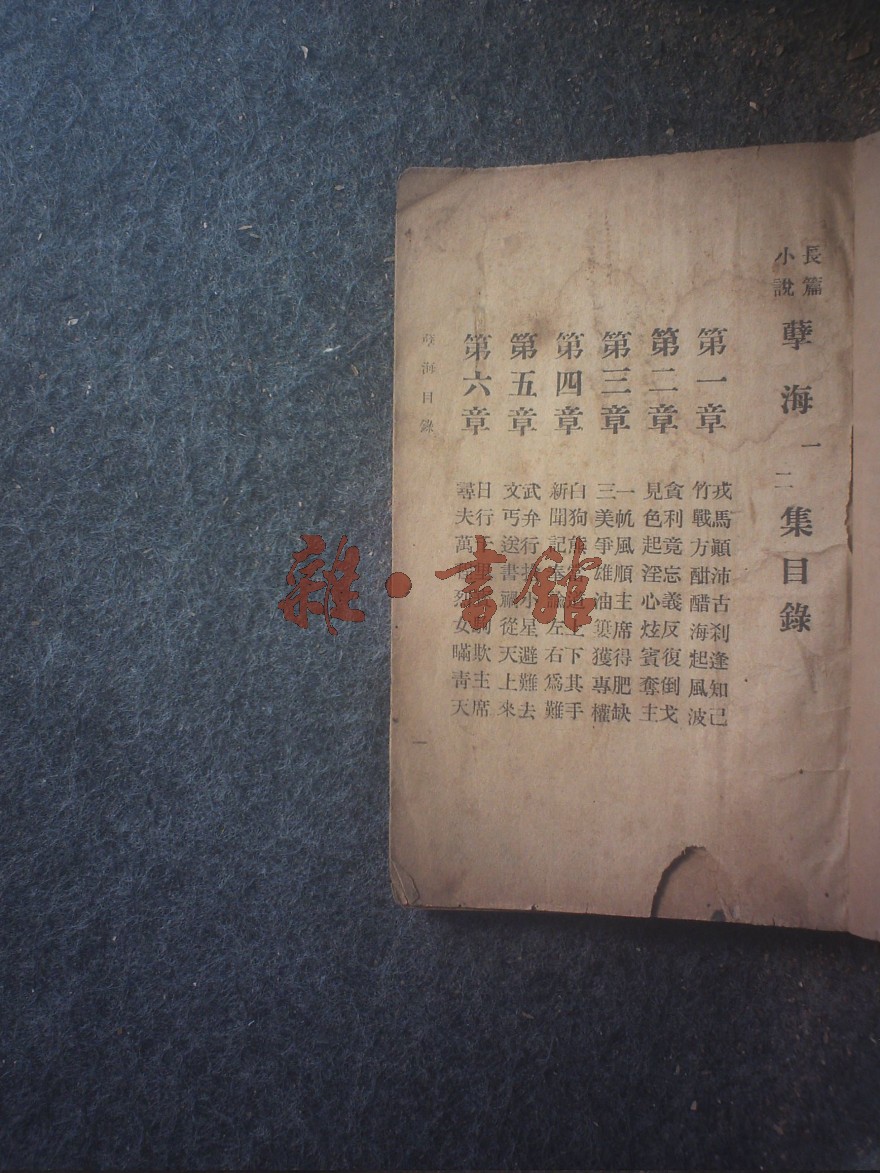 長篇
小說
孽海一二集目錄
第一章
戎馬顚沛古刹逢知己
竹戰方酣醋海起風波
第二章
貪利竟忘義反復倒戈
見色起淫心炫賓奪主
第三章
一帆風順主席得肥缺
三美爭雄油簍獲專權
第四章
白狗上下其手
新聞記論左右爲難
第五章
武弁行小星避難去
文丐送書從天上來
第六章
日行欺主席
尋夫萬烈女嘯青天
孽海目錄
一
雜·書館